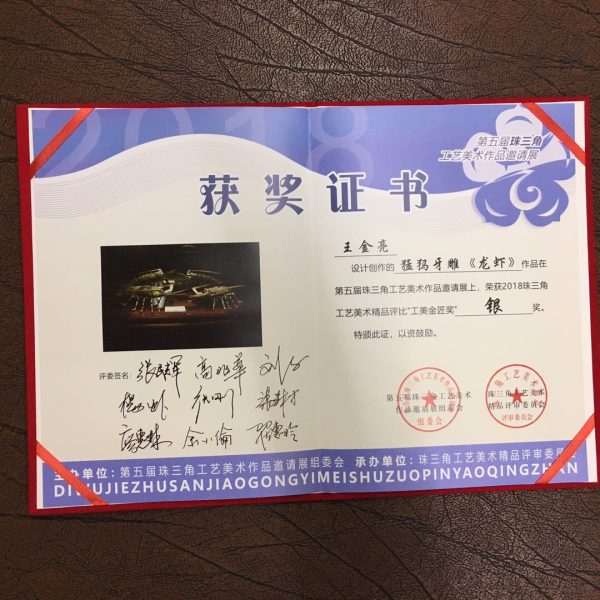 2018
第五届珠三角
工艺美术作品邀请展
获奖证书
王金亮
设计创作的 猛犸牙雕《龙虾》 作品在
第五届珠三角工艺美术作品邀请展上，荣获2018珠三角
工艺美术精品评比"工美金匠奖" 银 奖。
特颁此证，以资鼓励。
评委签名：
第五届珠三角工艺美术
作品邀请展组委会
组委会
珠三角工艺美术
精品评审委员会
评审委员会
主办单位：第五届珠三角工艺美术作品邀请展组委会 承办单位：珠三角工艺美术精品评审委员会
DIWUJIEZHUSANJIAOGONGYIMEISHUZUOPINYAOQINGZHAN